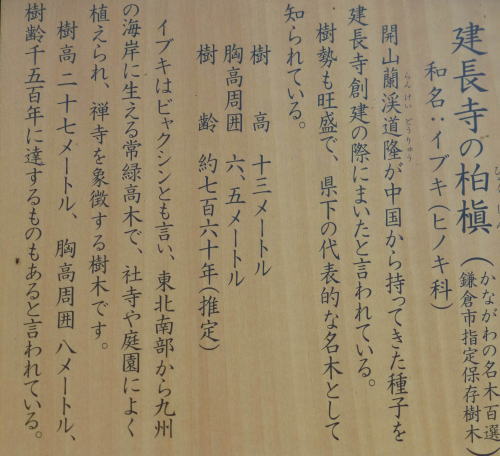 建長寺の柏槇（かながわの名木百選
鎌倉市指定保存樹木）
和名：イブキ（ヒノキ科）
開山蘭渓道隆が中国から持ってきた種子を
建長寺創建の際にまいたと言われている。
樹勢も旺盛で、県下の代表的な名木として
知られている。
樹高 十三メートル
胸高周囲 六、五メートル
樹齢 約七百六十年（推定）
イブキはビャクシンとも言い、東北南部から九州
の海岸に生える常緑高木で、社寺や庭園によく
植えられ、禅寺を象徴する樹木です。
樹高 二十七メートル、胸高周囲 八メートル、
樹齢千五百年に達するものもあると言われている。